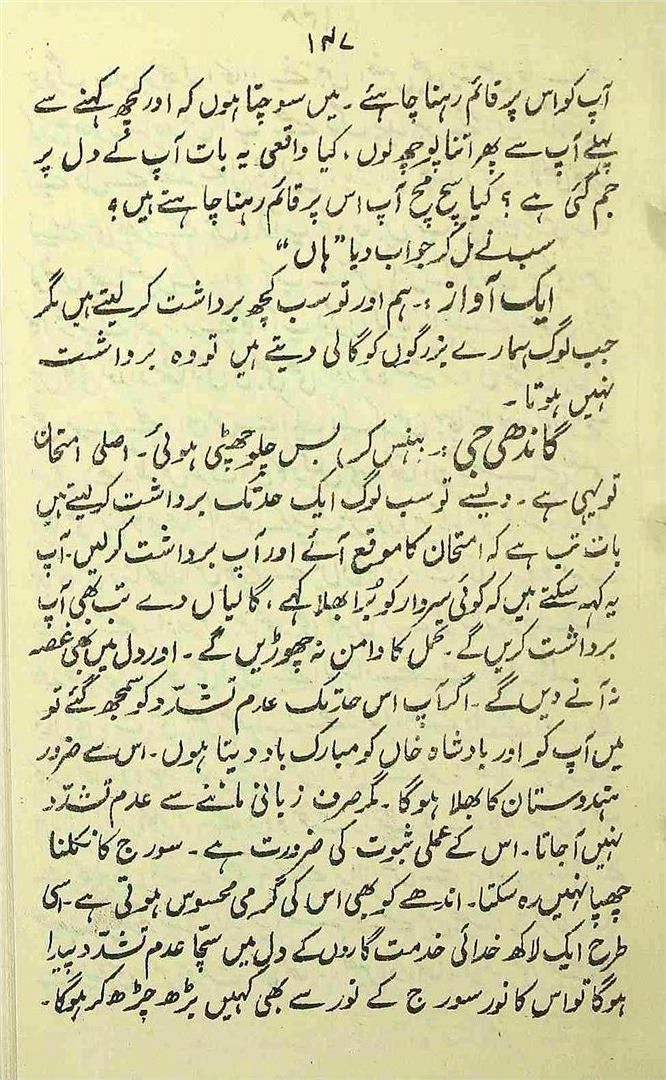 ۱۴۷
آپ کو اس پر قائم رہنا چاہئے۔ میں سوچتا ہوں کہ اور کچھ کہنے سے
پہلے آپ سے پھر اتنا پوچھ لوں، کیا واقعی یہ بات آپ کے دل پر
جم گئی ہے؟ کیا سچ مچ آپ اس پر قائم رہنا چاہتے ہیں؟
سب نے مل کر جواب دیا ”ہاں“
ایک آواز :۔ ہم اور تو سب کچھ برداشت کر لیتے ہیں مگر
جب لوگ ہمارے بزرگوں کو گالی دیتے ہیں تو وہ برداشت
نہیں ہوتا۔
گاندھی جی :۔ (ہنس کر) بس چلو چھٹی ہوئی۔ اصلی امتحان
تو یہی ہے۔ ویسے تو سب لوگ ایک حد تک برداشت کر لیتے ہیں
بات تب ہے کہ امتحان کا موقع آئے اور آپ برداشت کر لیں۔ آپ
یہ کہہ سکتے ہیں کہ کوئی سردار کو بُرا بھلا کہے، گالیاں دے تب بھی آپ
برداشت کریں گے۔ تحمل کا دامن نہ چھوڑیں گے۔ اور دل میں بھی غصہ
نہ آنے دیں گے۔ اگر آپ اس حد تک عدم تشدّد کو سمجھ گئے تو
میں آپ کو اور بادشاہ خاں کو مبارک باد دیتا ہوں۔ اس سے ضرور
ہندوستان کا بھلا ہوگا۔ مگر صرف زبانی ماننے سے عدم تشدّد
نہیں آجاتا۔ اس کے عملی ثبوت کی ضرورت ہے۔ سورج کا نکلنا
چھپا نہیں رہ سکتا۔ اندھے کو بھی اس کی گرمی محسوس ہوتی ہے۔ اسی
طرح ایک لاکھ خدائی خدمت گاروں کے دل میں سچّا عدم تشدّد پیدا
ہوگا تو اس کا نور سورج کے نور سے بھی کہیں بڑھ چڑھ کر ہوگا۔